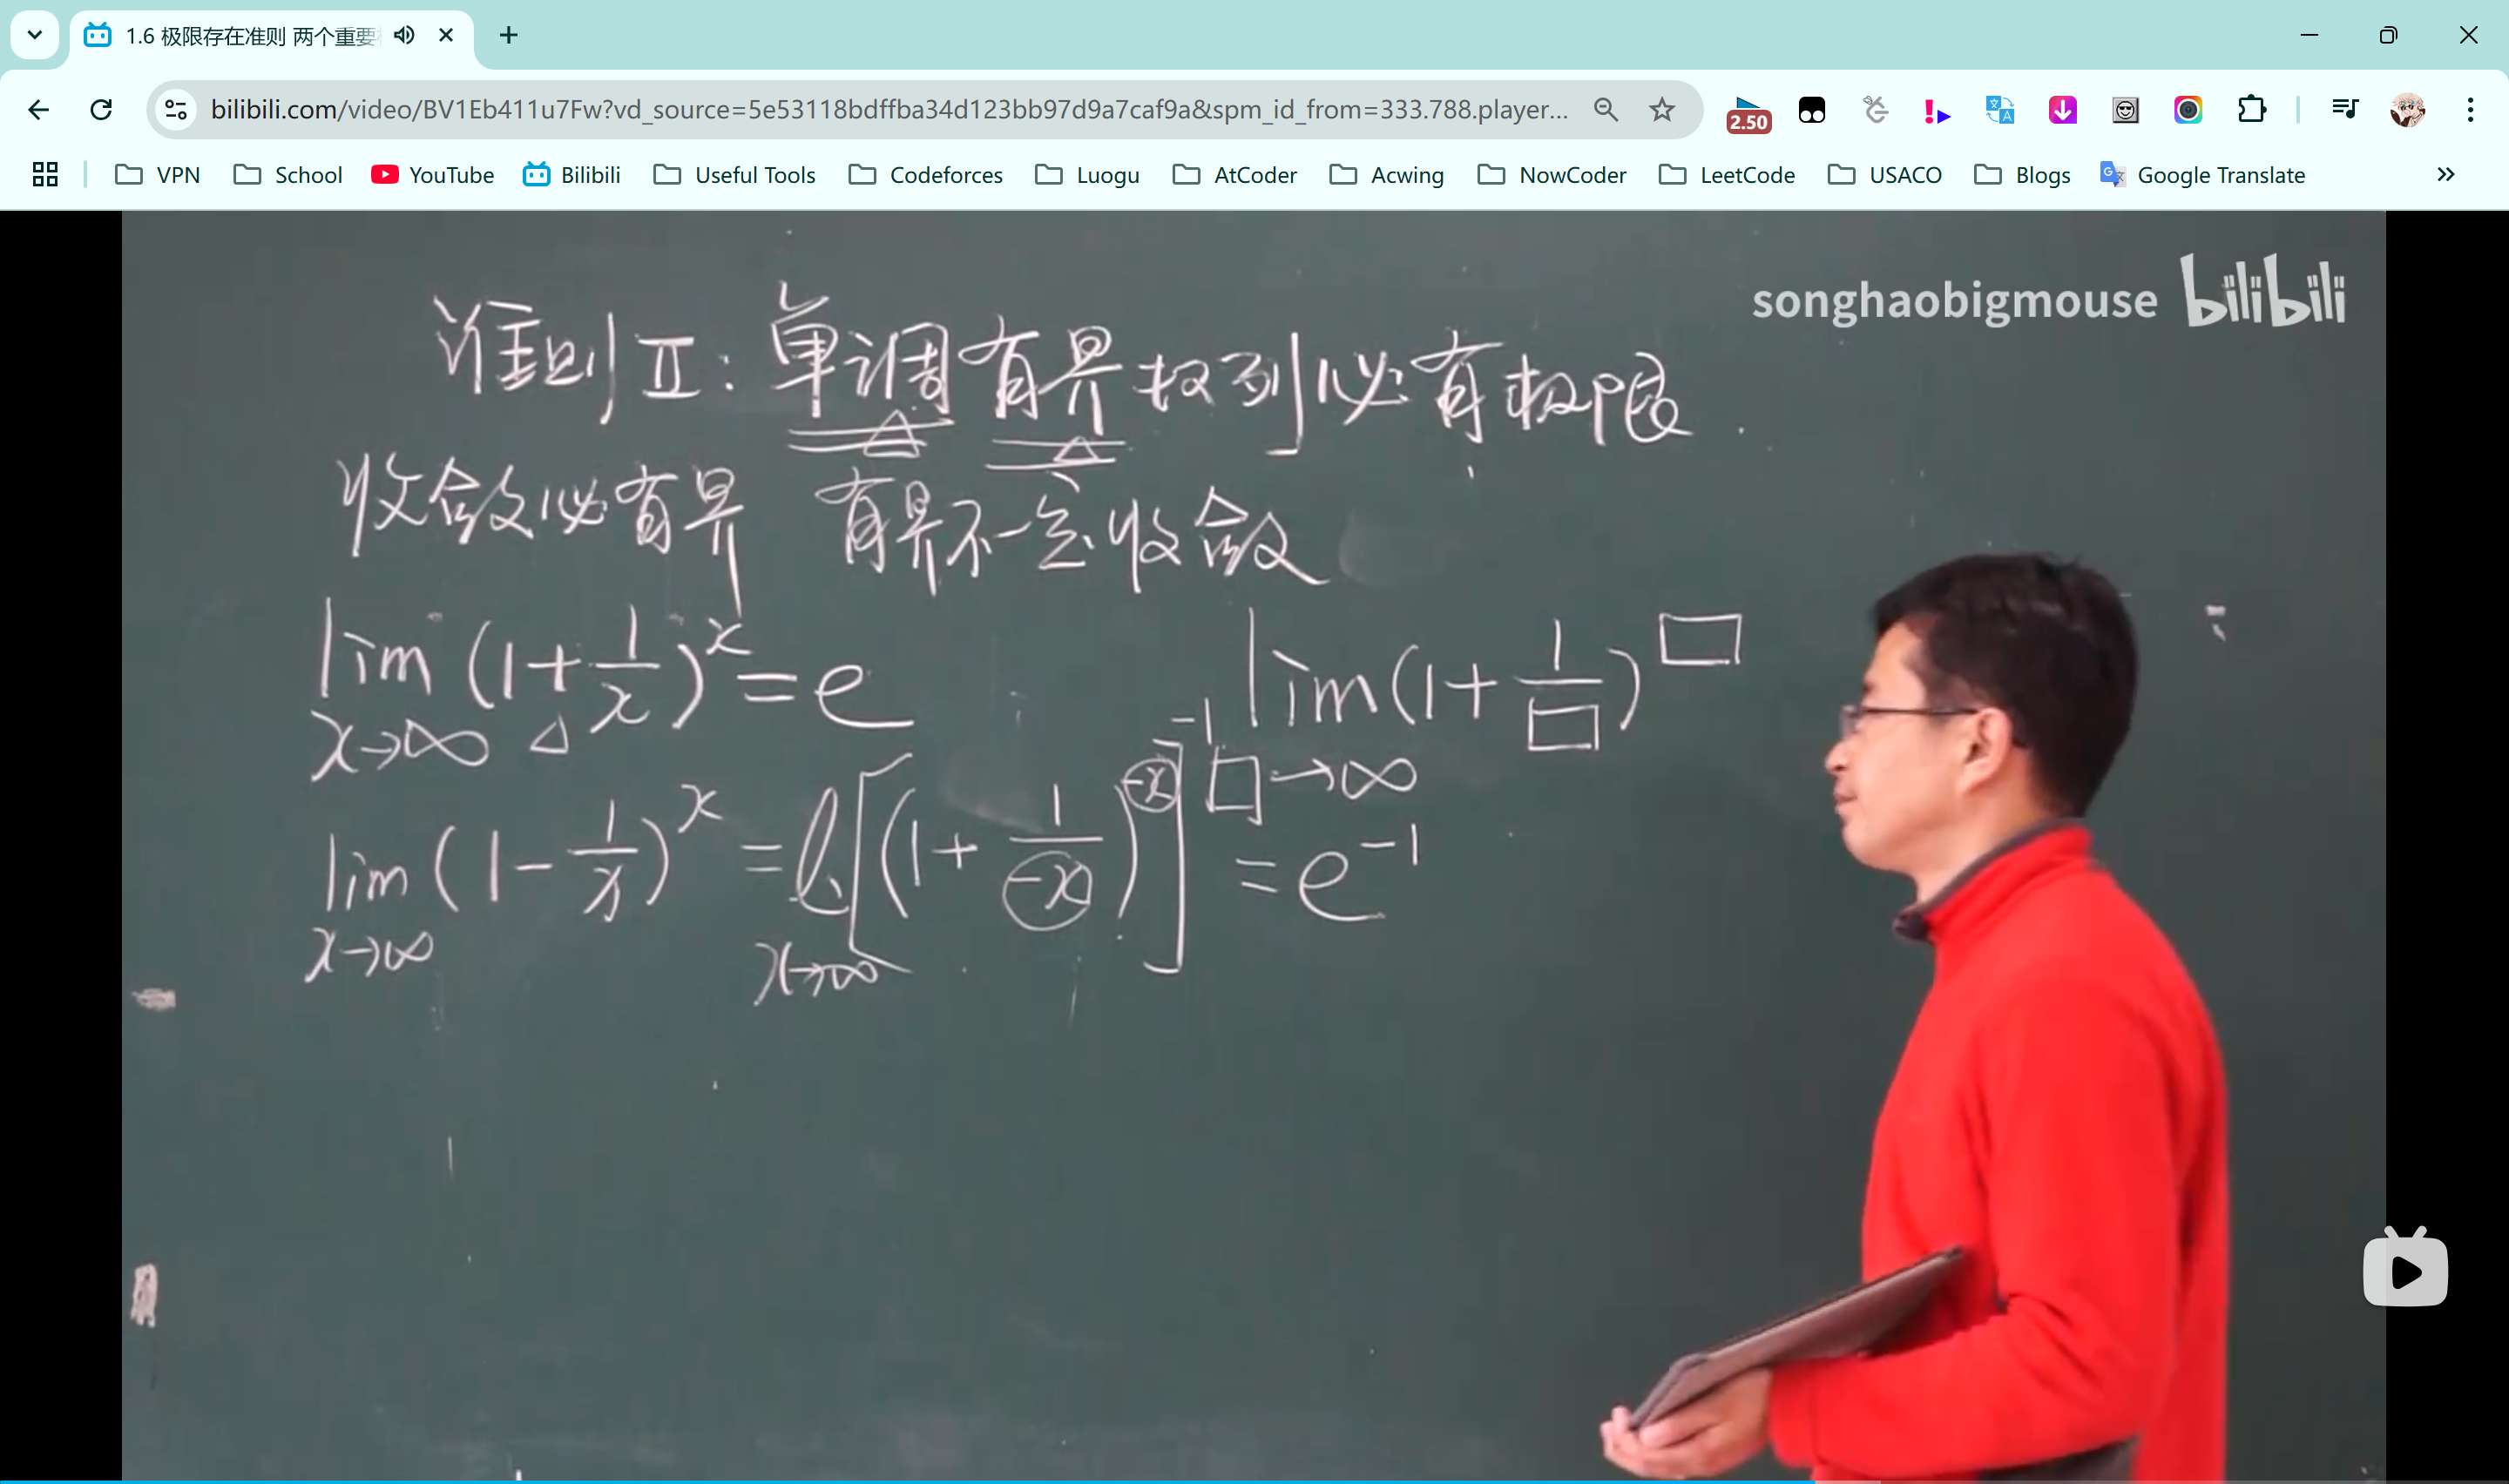 1.6 极限存在准则 两个重要
bilibili.com/video/BV1Eb411u7Fw?vd_source=5e53118bdffba34d123bb97d9a7caf9a&spm_id_from=333.788.player...
2.50
VPN School YouTube Bilibili Useful Tools Codeforces Luogu AtCoder Acwing NowCoder LeetCode USACO Blogs Google Translate
songhaobigmouse bilibili
准则Ⅱ：单调有界数列必有极限.
收敛必有界 有界不一定收敛
lim (1+1/x)^x = e lim(1+1/□)^□
x→∞ △ □→∞
lim (1-1/x)^x = l.[(1+1/(-x))^(-x)]^-1 = e^-1
x→∞ x→∞